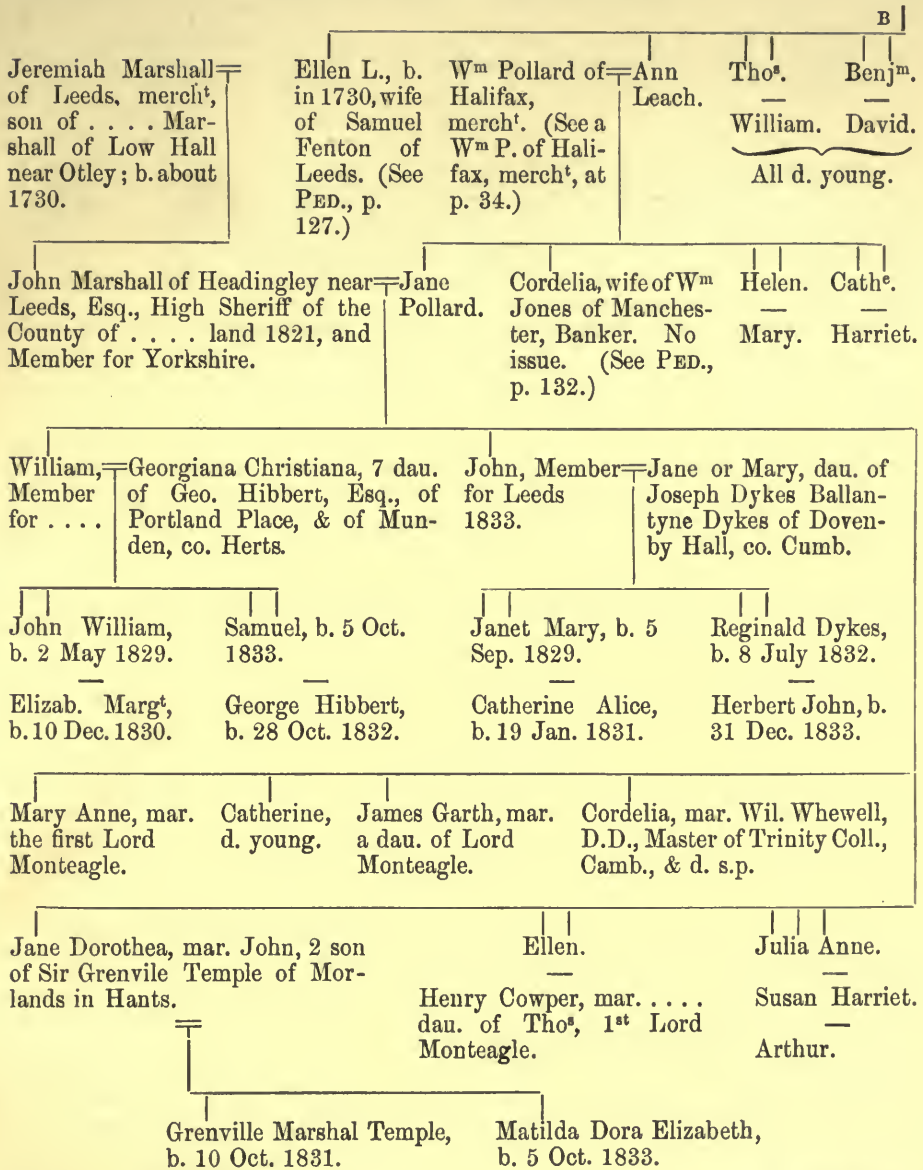 B
Jeremiah Marshall
of Leeds, mercht,
son of . . . . Mar-
shall of Low Hall
near Otley; b. about
1730.
Ellen L., b.
in 1730, wife
of Samuel
Fenton of
Leeds. (See
PED., p.
127.)
Wm Pollard of
Halifax,
mercht. (See a
Wm P. of Hali-
fax, mercht, at
p. 34.)
Ann
Leach.
Thos.
—
William.
Benjm.
—
David.
All d. young.
John Marshall of Headingley near
Leeds, Esq., High Sheriff of the
County of . . . . land 1821, and
Member for Yorkshire.
Jane
Pollard.
Cordelia, wife of Wm
Jones of Manches-
ter, Banker. No
issue. (See PED.,
p. 132.)
Helen.
—
Mary.
Cathe.
—
Harriet.
William,
Member
for . . . .
Georgiana Christiana, 7 dau.
of Geo. Hibbert, Esq., of
Portland Place, & of Mun-
den, co. Herts.
John, Member
for Leeds
1833.
Jane or Mary, dau. of
Joseph Dykes Ballan-
tyne Dykes of Doven-
by Hall, co. Cumb.
John William,
b. 2 May 1829.
—
Elizab. Margt,
b. 10 Dec. 1830.
Samuel, b. 5 Oct.
1833.
—
George Hibbert,
b. 28 Oct. 1832.
Janet Mary, b. 5
Sep. 1829.
—
Catherine Alice,
b. 19 Jan. 1831.
Reginald Dykes,
b. 8 July 1832.
—
Herbert John, b.
31 Dec. 1833.
Mary Anne, mar.
the first Lord
Monteagle.
Catherine,
d. young.
James Garth, mar.
a dau. of Lord
Monteagle.
Cordelia, mar. Wil. Whewell,
D.D., Master of Trinity Coll.,
Camb., & d. s.p.
Jane Dorothea, mar. John, 2 son
of Sir Grenvile Temple of Mor-
lands in Hants.
Ellen.
—
Henry Cowper, mar. . . . .
dau. of Thos, 1st Lord
Monteagle.
Julia Anne.
—
Susan Harriet.
—
Arthur.
Grenville Marshal Temple,
b. 10 Oct. 1831.
Matilda Dora Elizabeth,
b. 5 Oct. 1833.